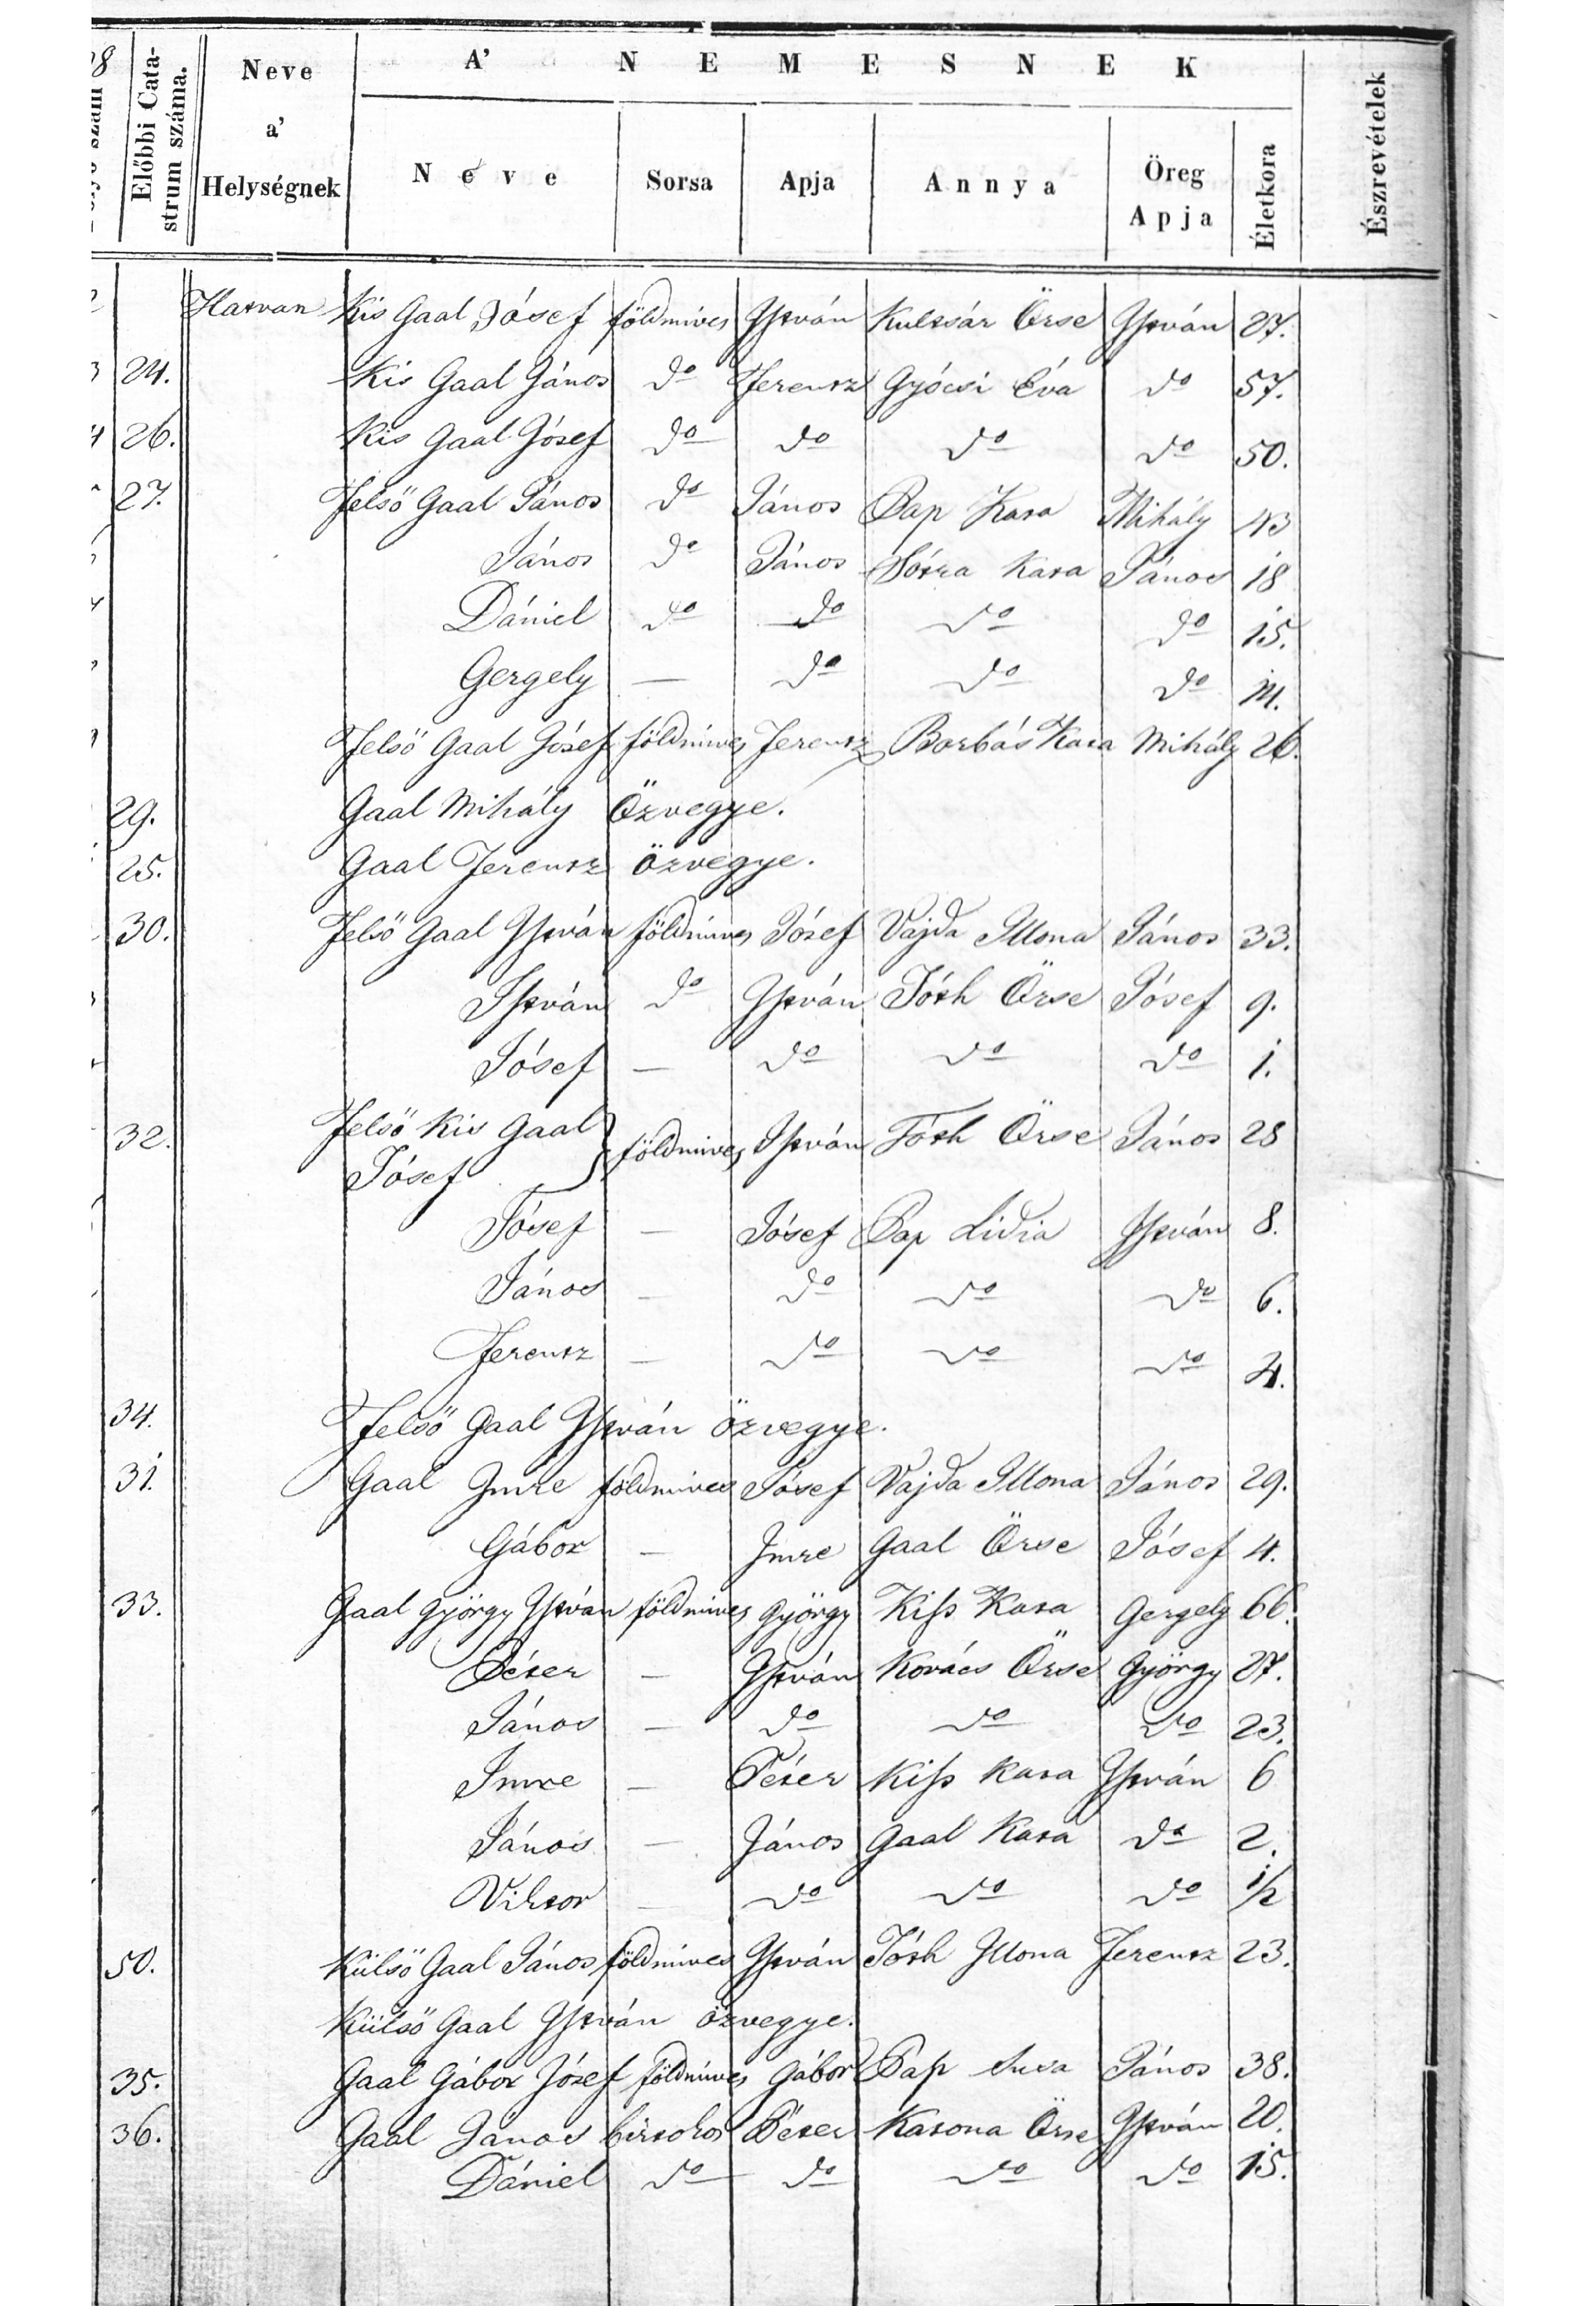 A' NEMESNEK
Előbbi Cata-
strum száma.
Neve
a'
Helységnek
Neve
Sorsa
Apja
Annya
Öreg
Apja
Életkora
Észrevételek
Hatvan Kis Gaal Jósef földmives István Kultsár Örse István 27.
24. Kis Gaal János do Ferentz Gyócsi Éva do 57.
26. Kis Gaal Jósef do do do do 50.
27. Felső Gaal János do János Pap Kata Mihály 43
János do János Kata János 18
Dániel do do do do 15.
Gergely — do do do 14.
Felső Gaal Jósef földmives Ferentz Borbás Kata Mihály 26.
29. Gaal Mihály Özvegye.
25. Gaal Ferentz özvegye.
30. Felső Gaal István földmives Jósef Vajda Illona János 33.
István do István Tóth Örse Jósef 9.
Jósef — do do do 1.
32. Felső Kis Gaal
Jósef } földmives István Tóth Örse János 28
Jósef — Jósef Pap Lidia István 8.
János — do do do 6.
Ferentz — do do do 4.
34. Felső Gaal István özvegye.
31. Gaal Imre földmives Jósef Vajda Illona János 29.
Gábor — Imre Gaal Örse Jósef 4.
33. Gaal György István földmives György Kiss Kata Gergely 66.
Péter — István Kovács Örse György 27.
János — do do do 23.
Imre — Péter Kiss Kata István 6
János — János Gaal Kata do 2.
Viktor — do do do 1/2
50. Külső Gaal János földmives István Tóth Illona Ferentz 23.
Külső Gaal István özvegye.
35. Gaal Gábor Jósef földmives Gábor Pap Susa János 38.
36. Gaal János birtokos Péter Katona Örse István 20.
Dániel do do do do 15.